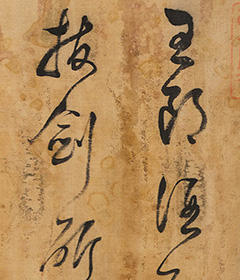 王郎酒
拔劍斫